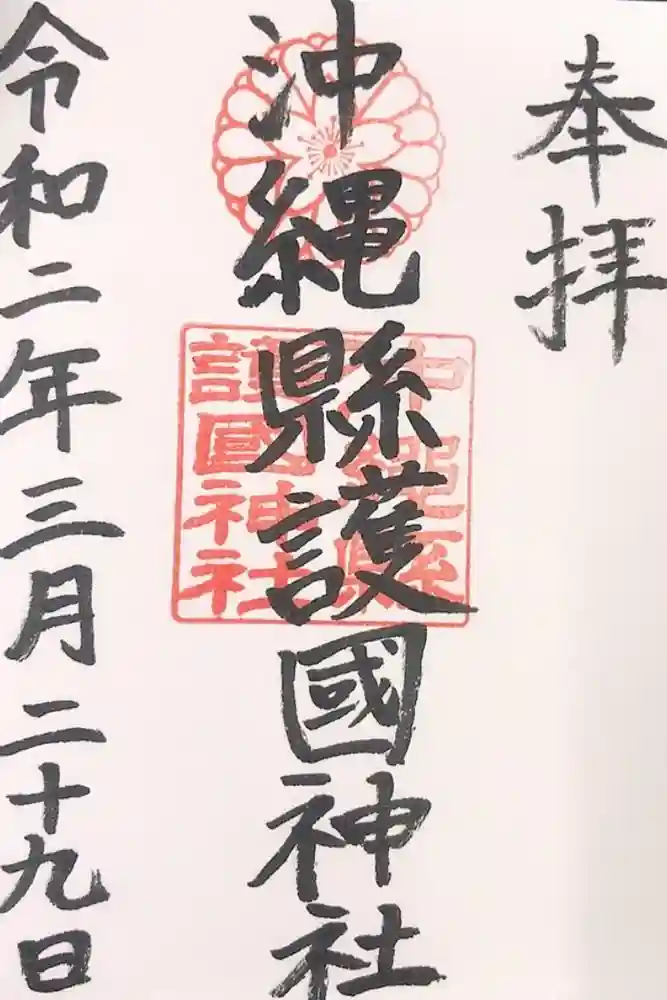 奉拝
沖縄縣護國神社
沖縄縣
護國神社
令和二年三月二十九日